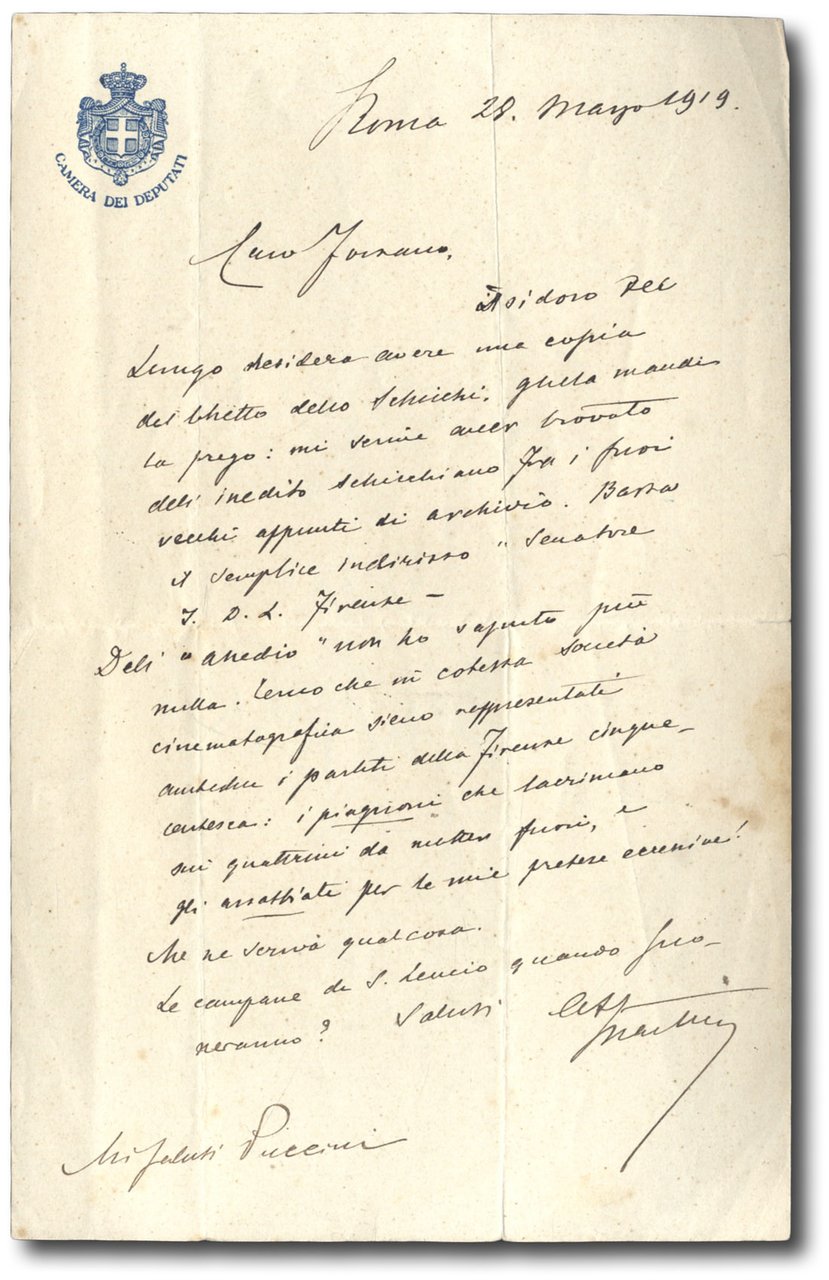 CAMERA DEI DEPUTATI
Roma 28. Marzo 1919.
Caro Forzano,
Isidoro Del
Lungo desidera avere una copia
del libretto dello Schicchi. Gliela mandi
la prego: mi scrive aver trovato
dell'inedito Schicchiano fra i suoi
vecchi appunti di archivio. Basta
il semplice indirizzo "Senatore
I. D. L. Firenze –
Dell' "Assedio" non ho saputo più
nulla. Temo che in cotesta società
cinematografica sieno rappresentati
ambedue i partiti della Firenze cinque-
centesca: i piagnoni che lacrimano
sui quattrini da metter fuori, e
gli arrabbiati per le mie pretese eccessive!
Me ne scriva qualcosa.
Le campane di S. Leucio quando suo-
neranno? Saluti
Martini
Mi saluti Puccini